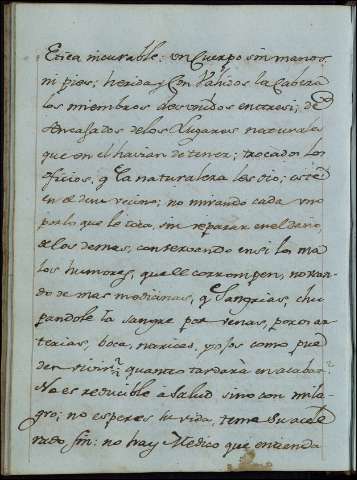 Etica incurable: un Cuerpo sin manos,
ni pies; herida y Con Vahidos la Cabeza
los miembros desunidos entre si; de
sencasados de los Lugares naturales
que en el havian de tener; trocados los
oficios, q̃ la naturaleza les dio; esté
en el deve reino; no mirando cada uno
por lo que le toca, sin reparar en el daño,
de los demas, conservando en si los ma
los humores, que le corrompen, no usan
do de mas medicinas, q̃ Sangrias, chu
pandole la sangre por venas, por sus ar
terias, boca, narices, y ojos como pue
den vivir? quanto tardarà en acabar?
No es reducible à salud sino con mila
gro; no esperes la vida, teme su acele
rado, fin: no hay Medico que entienda